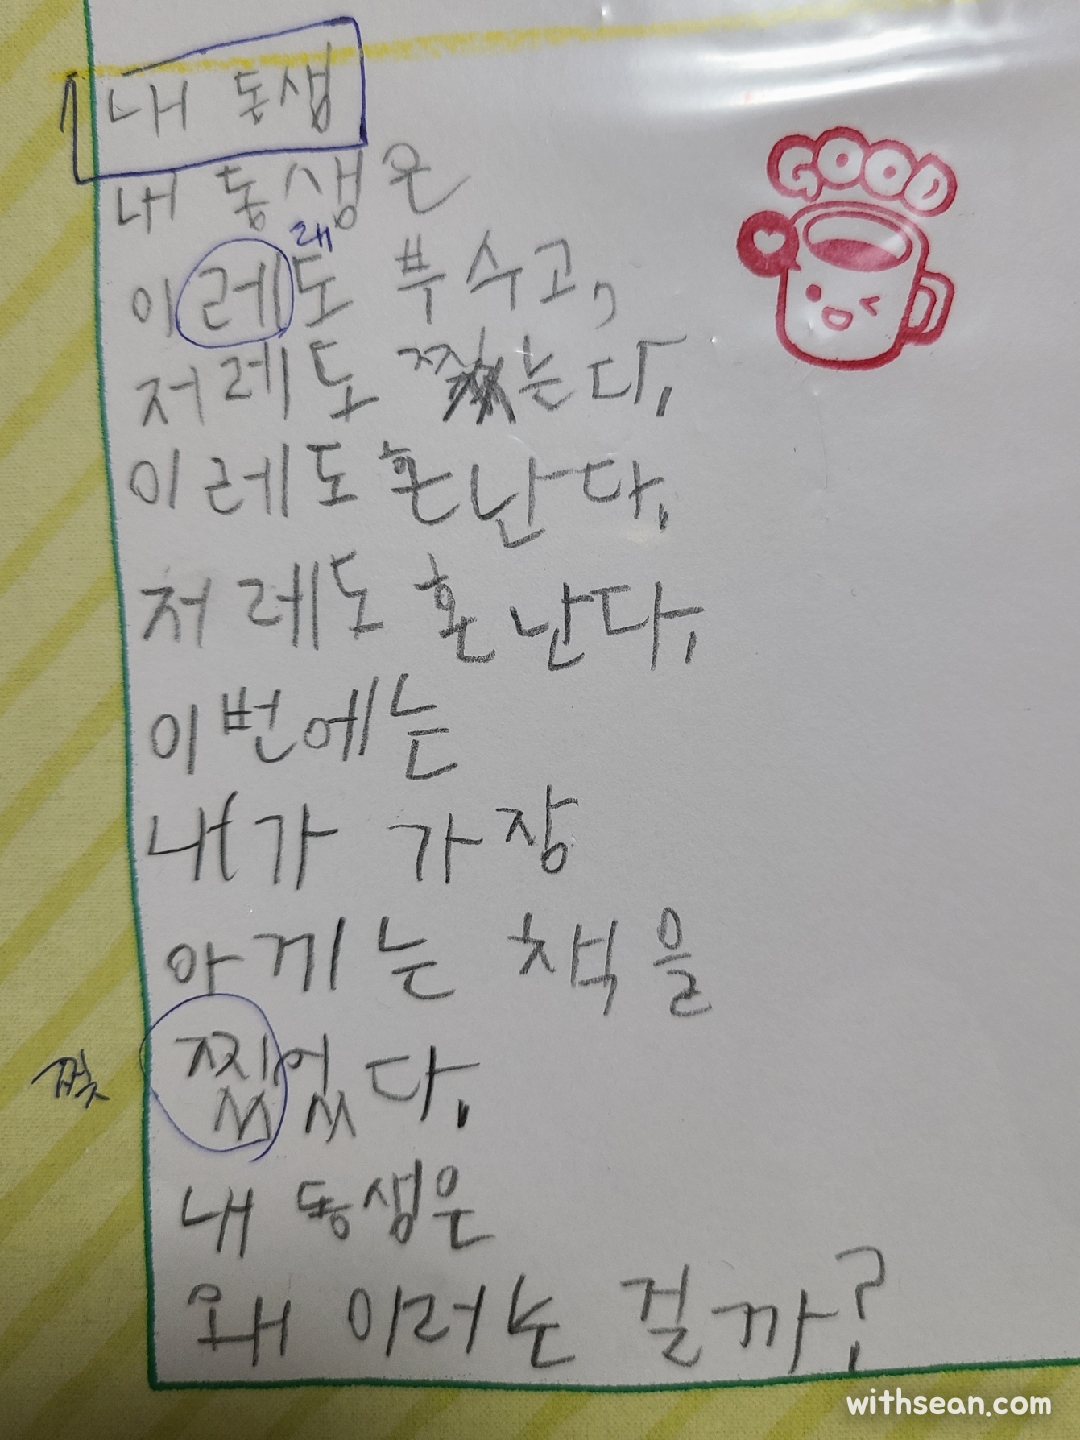 내 동생
내 동생은
래
이레도 부수고,
저레도 찢는다,
이레도 혼난다,
저레도 혼난다,
이번에는
내가 가장
아께는 책을
찢
찟었다,
내 동생은
왜 이러는 걸까?
GOOD
withsean.com